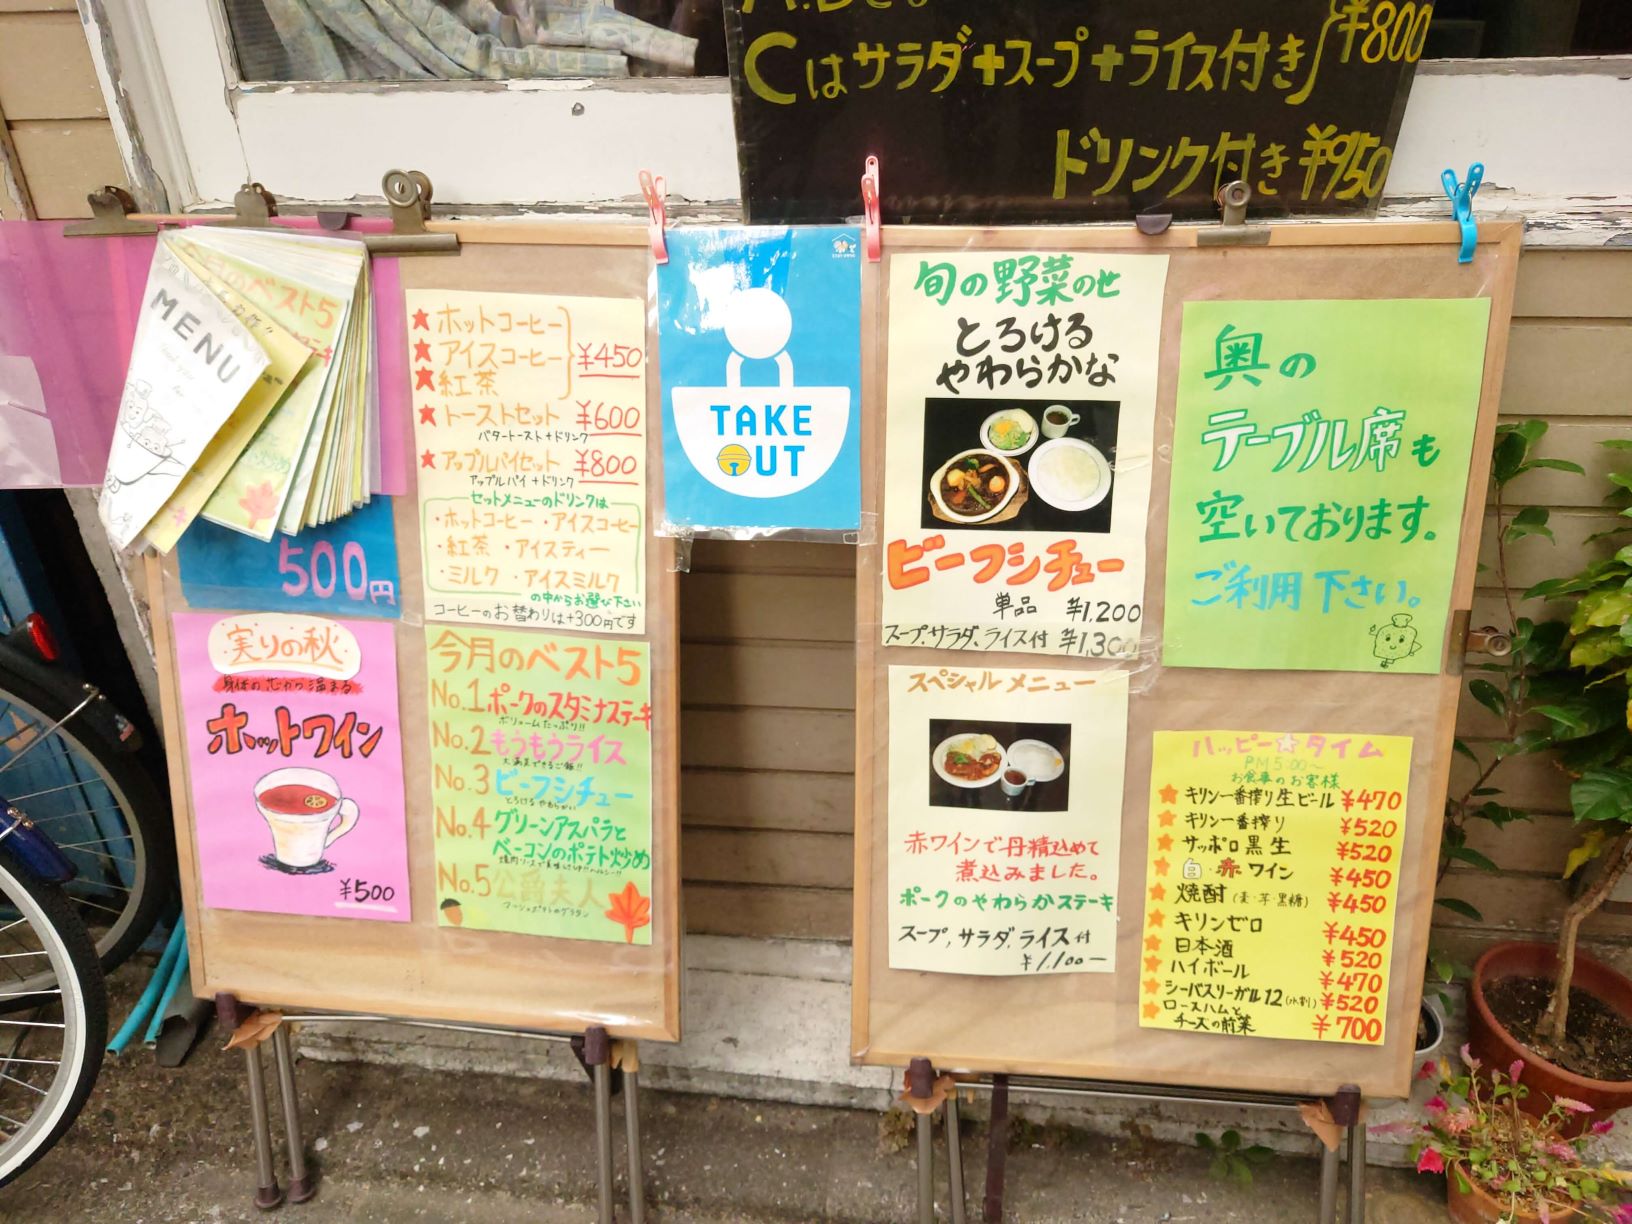 Cはサラダ+スープ+ライス付き ¥800
ドリンク付き ¥950
月のベスト5
MENU
500円
★ホットコーヒー
★アイスコーヒー ¥450
★紅茶
★トーストセット ¥600
バタートースト+ドリンク
★アップルパイセット ¥800
アップルパイ+ドリンク
セットメニューのドリンクは
・ホットコーヒー ・アイスコーヒー
・紅茶 ・アイスティー
・ミルク ・アイスミルク
の中からお選び下さい
コーヒーのお替わりは+300円です
実りの秋
身体の芯から温まる
ホットワイン
¥500
今月のベスト5
No.1 ポークのスタミナステーキ
ボリュームたっぷり!!
No.2 もうもうライス
No.3 ビーフシチュー
とろける やわらかい
No.4 グリーンアスパラと
ベーコンのポテト炒め
No.5 公爵夫人
マッシュポテトのグラタン
TAKE
OUT
旬の野菜のせ
とろける
やわらかな
ビーフシチュー
単品 ¥1,200
スープ、サラダ、ライス付 ¥1,300
スペシャルメニュー
赤ワインで丹精込めて
煮込みました。
ポークのやわらかステーキ
スープ, サラダ, ライス付
¥1,100ー
奥の
テーブル席も
空いております。
ご利用下さい。
ハッピー☆タイム
PM5:00〜
お食事のお客様
★キリン一番搾り生ビール ¥470
★キリン一番搾り ¥520
★サッポロ黒生 ¥520
★白・赤ワイン ¥450
★焼酎(麦・芋・黒糖) ¥450
★キリンゼロ ¥450
★日本酒 ¥520
★ハイボール ¥470
★シーバスリーガル12(水割) ¥520
★ロースハムと
チーズの前菜 ¥700